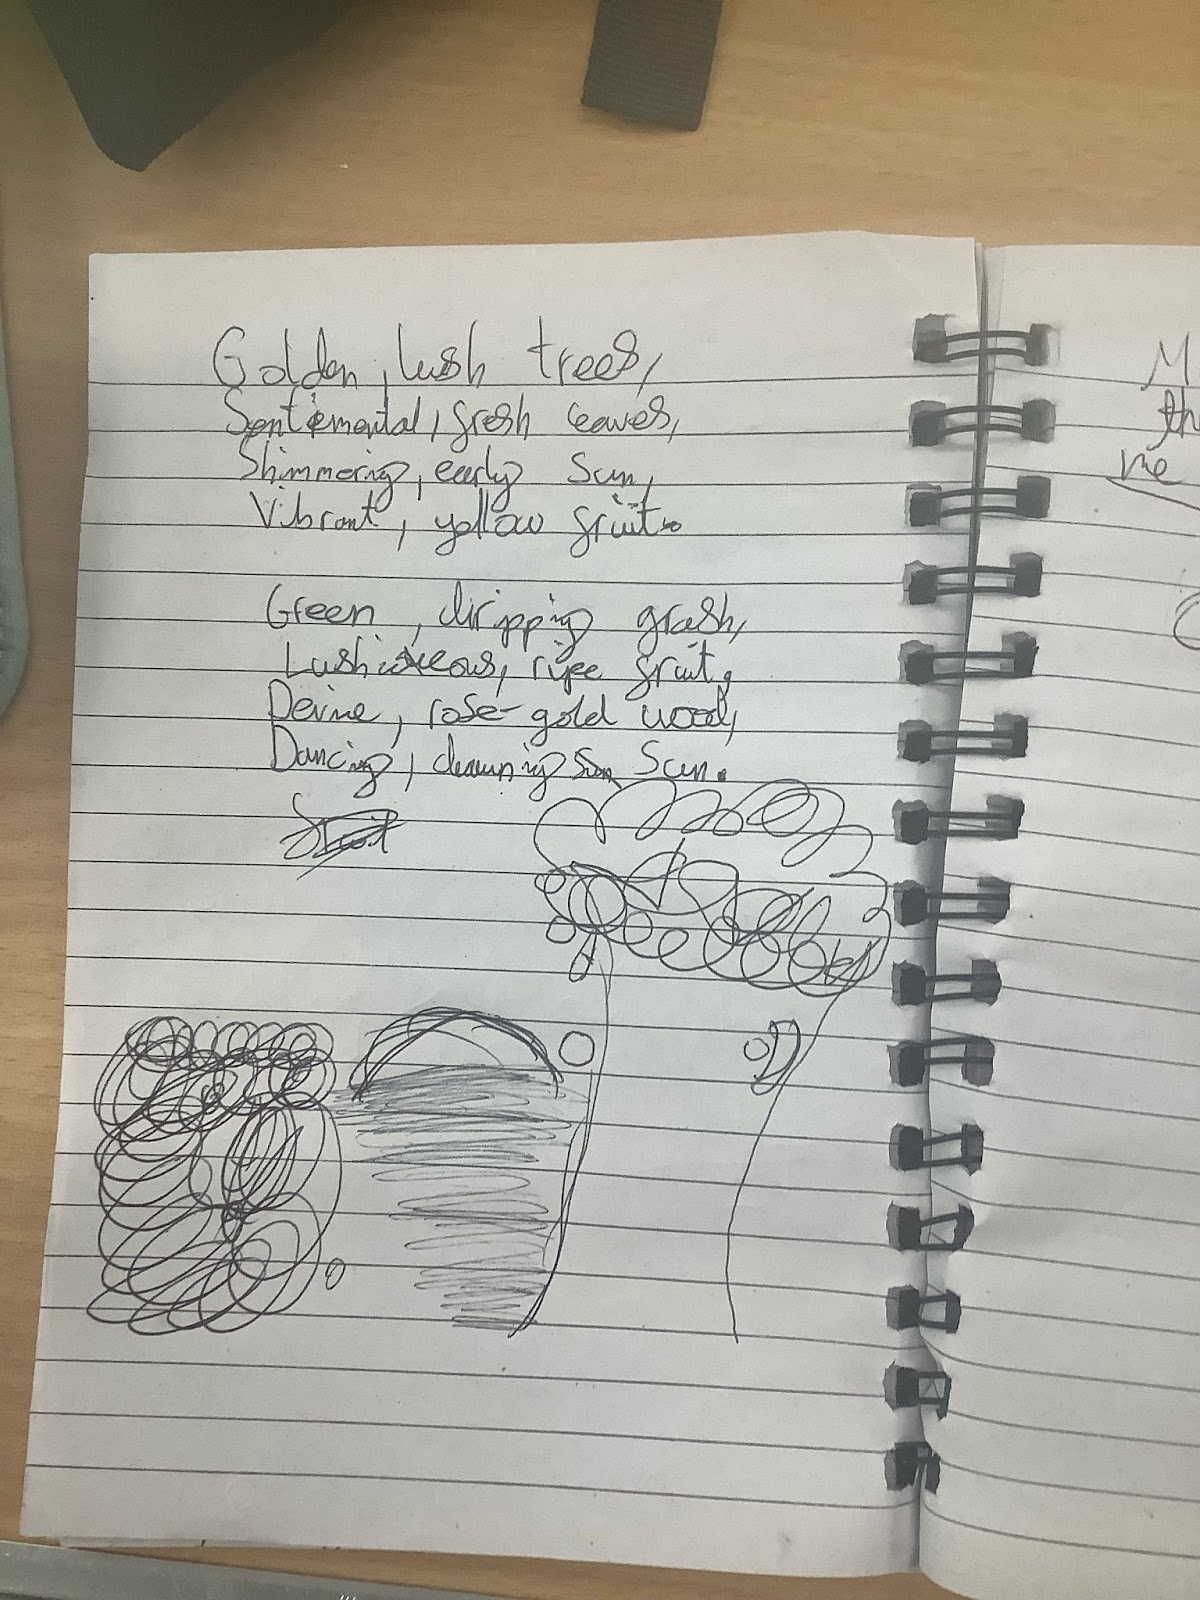 Golden, lush trees,
Sentiemental, fresh leaves,
Shimmering, early Sun,
Vibrant, yellow fruit.
Green, dripping grash,
Lushieous, ripe fruit,
Devine, rose-gold wood,
Dancing, dawning Sun Sun.
M
th
me